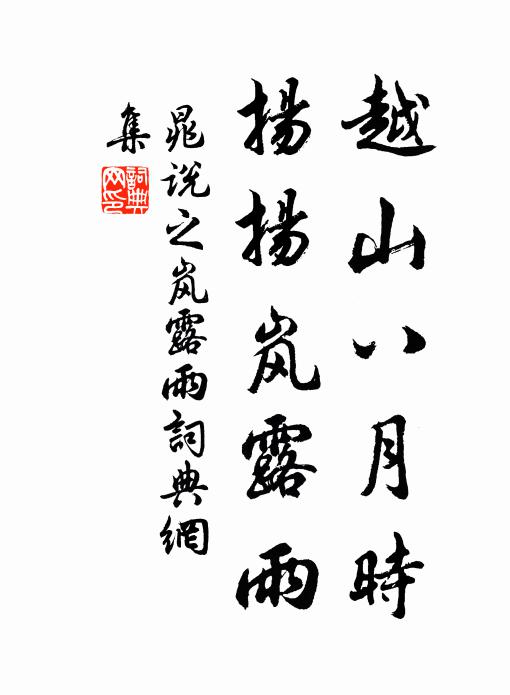 越山八月時
揚揚岚露雨
晁说之岚露雨詞典網
集
詞典网印